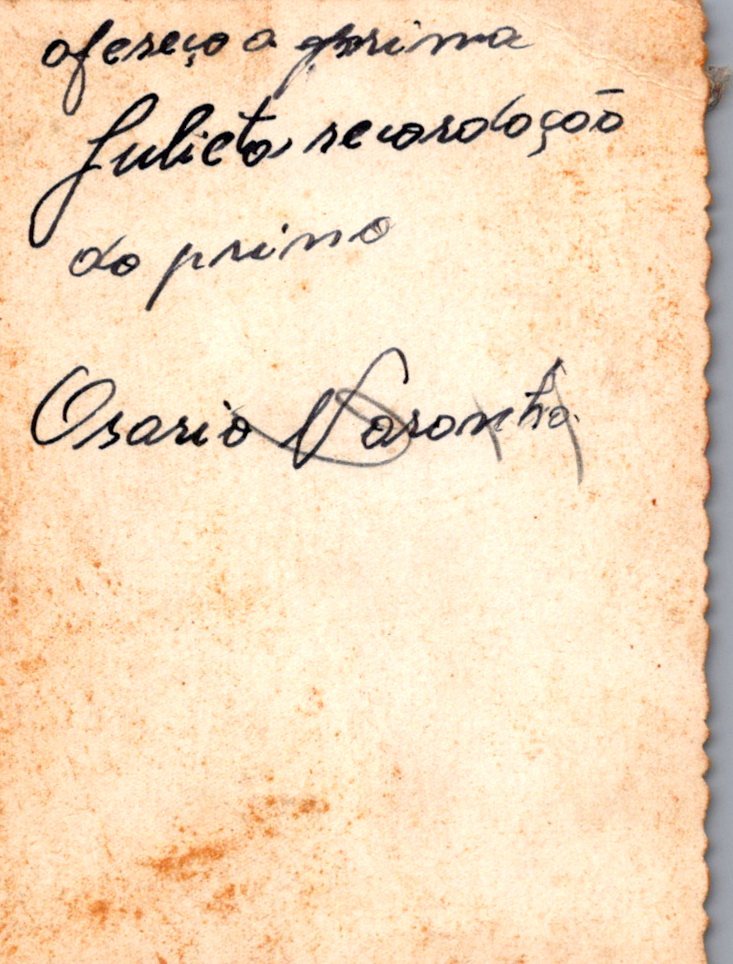 ofereço a prima
Julieta recordação
do primo
Osario Noronha